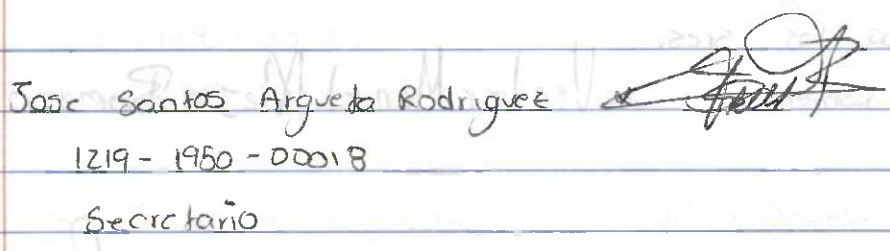 Jose Santos Argueta Rodriguez
1219-1950-00018
Secretario